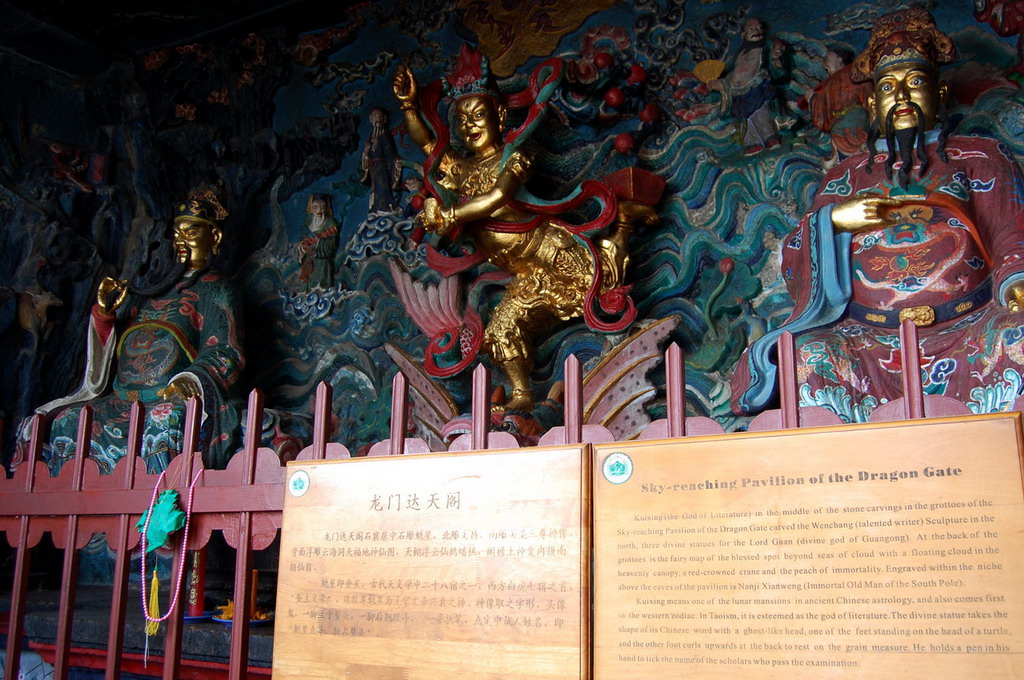 龙门达天阁
龙门达天阁石窟居中石雕魁星，北雕文昌，南雕关圣三尊神像，
背面浮雕云海洞天福地神仙图，
仙翁。
魁星即奎星：古代天文学中二十八宿之一，西方白虎七宿之首，
Sky-reaching Pavilion of the Dragon Gate
Kuixing (the God of Literature) in the middle of the stone carvings in the grottoes of the
Sky-reaching Pavilion of the Dragon Gate carved the Wenchang (talented writer) Sculpture in the
north, three divine statues for the Lord Guan (divine god of Guangong). At the back of the
grottoes is the fairy map of the blessed spot beyond seas of cloud with a floating cloud in the
heavenly canopy, a red-crowned crane and the peach of immortality. Engraved within the niche
above the eaves of the pavilion is Nanji Xianweng (Immortal Old Man of the South Pole).
Kuixing means one of the lunar mansions in ancient Chinese astrology, and also comes first
in the western zodiac. In Taoism, it is esteemed as the god of literature. The divine statue takes the
shape of its Chinese word with a ghost-like head, one of the feet standing on the head of a turtle,
and the other foot curls upwards at the back to rest on the grain measure. He holds a pen in his
hand to tick the name of the scholars who pass the examination.